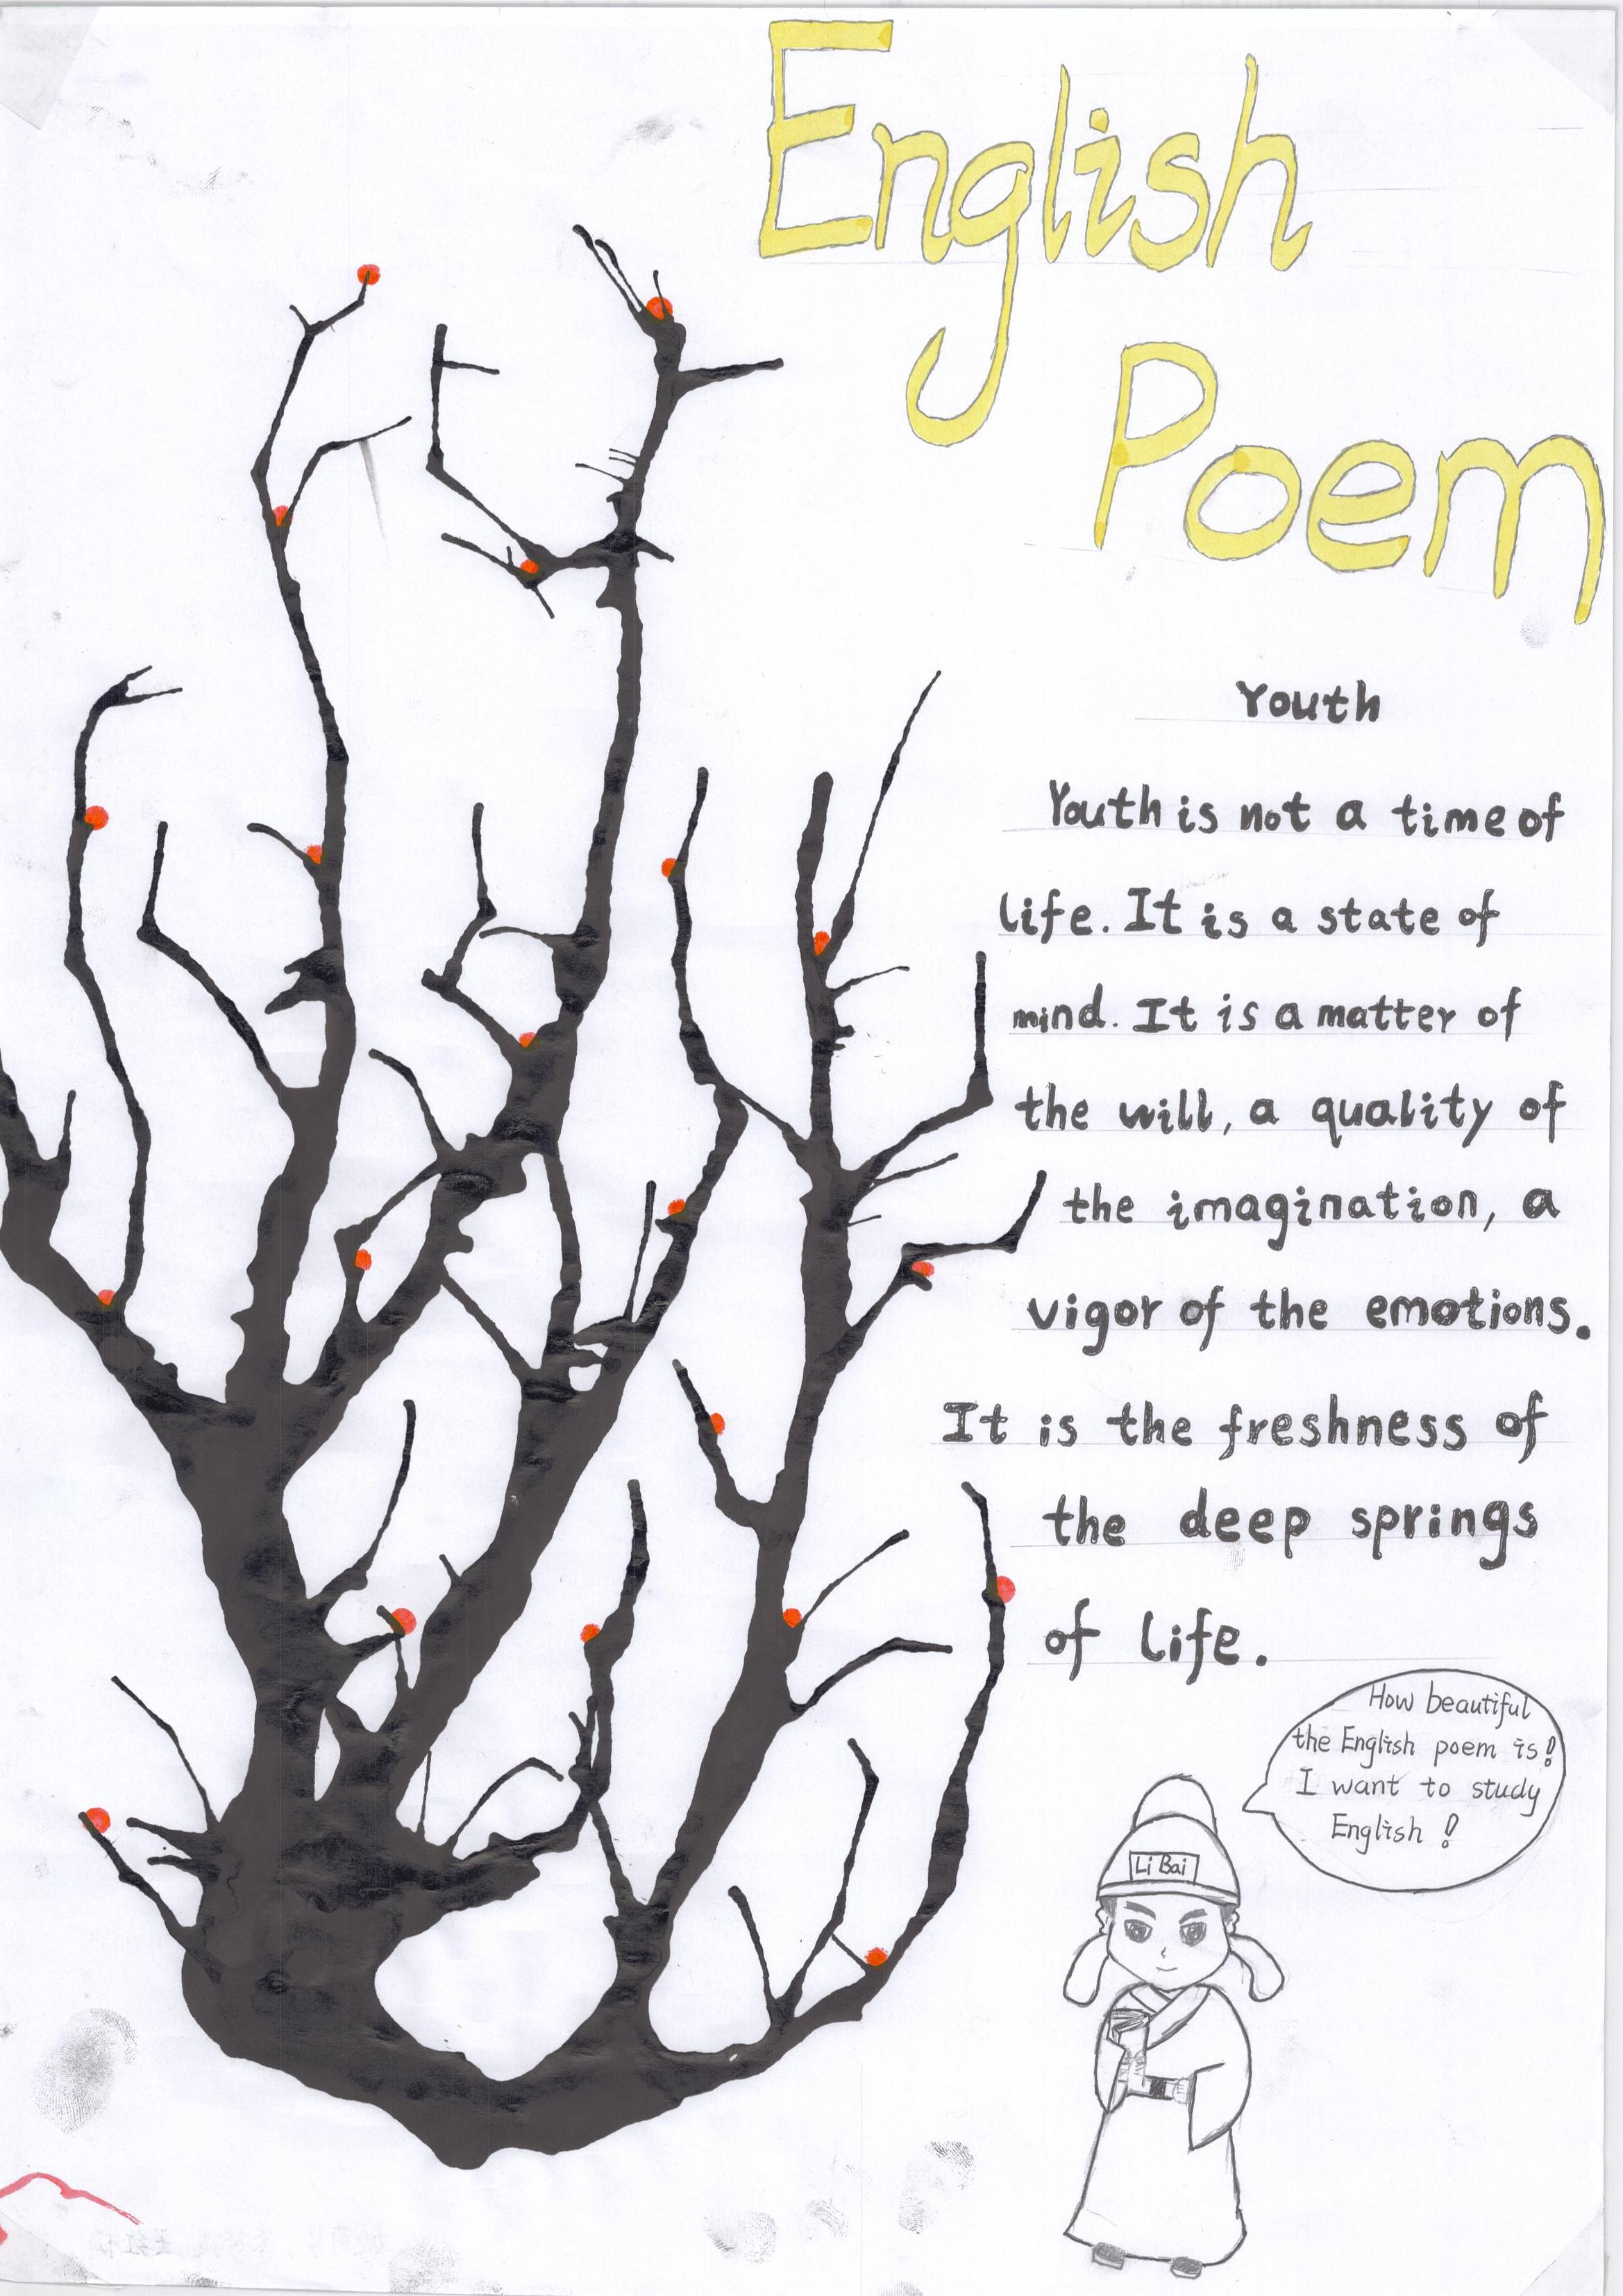 English
Poem
Youth
Youth is not a time of
life. It is a state of
mind. It is a matter of
the will, a quality of
the imagination, a
vigor of the emotions.
It is the freshness of
the deep springs
of life.
How beautiful
the English poem is!
I want to study
English!
Li Bai